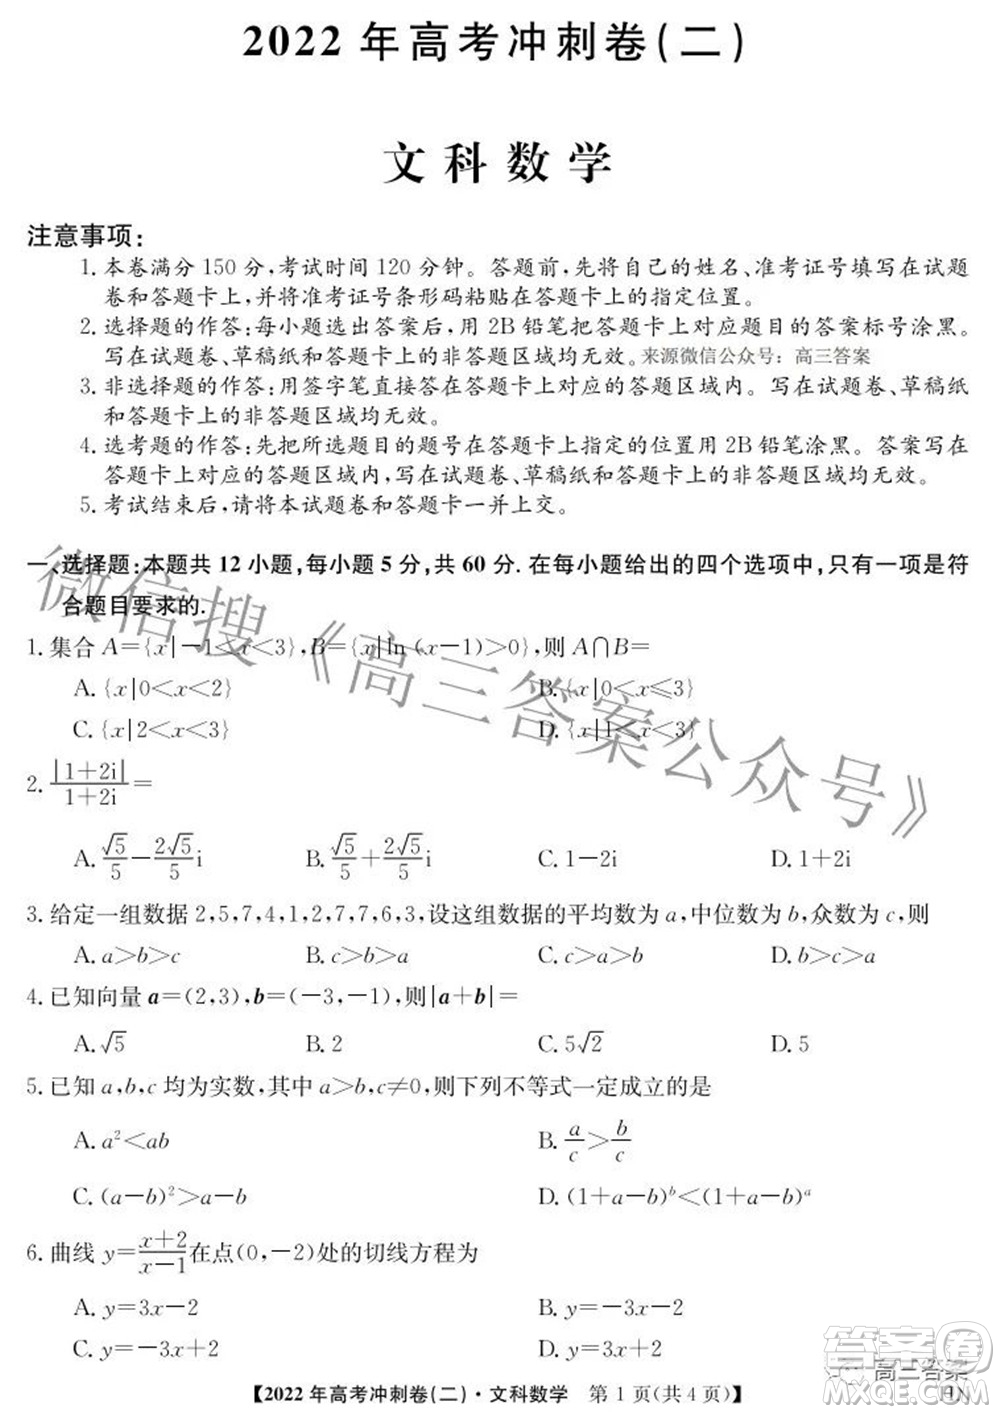 2022 年高考冲刺卷(二)
文科数学
注意事项:
1. 本卷满分 150 分,考试时间 120 分钟。答题前,先将自己的姓名、准考证号填写在试题
卷和答题卡上,并将准考证号条形码粘贴在答题卡上的指定位置。
2. 选择题的作答:每小题选出答案后,用 2B 铅笔把答题卡上对应题目的答案标号涂黑。
写在试题卷、草稿纸和答题卡上的非答题区域均无效。来源微信公众号:高三答案
3. 非选择题的作答:用签字笔直接答在答题卡上对应的答题区域内。写在试题卷、草稿纸
和答题卡上的非答题区域均无效。
4. 选考题的作答:先把所选题目的题号在答题卡上指定的位置用 2B 铅笔涂黑。答案写在
答题卡上对应的答题区域内,写在试题卷、草稿纸和答题卡上的非答题区域均无效。
5. 考试结束后,请将本试题卷和答题卡一并上交。
一、选择题:本题共 12 小题,每小题 5 分,共 60 分. 在每小题给出的四个选项中,只有一项是符
合题目要求的.
1. 集合 A={x|-1<x<3},B={x|ln (x-1)>0},则 A∩B=
A. {x|0<x<2} B. {x|0<x≤3}
C. {x|2<x<3} D. {x|1<x<3}
2. |1+2i|/1+2i=
A. √5/5-2√5/5i B. √5/5+2√5/5i C. 1-2i D. 1+2i
3. 给定一组数据 2,5,7,4,1,2,7,7,6,3,设这组数据的平均数为 a,中位数为 b,众数为 c,则
A. a>b>c B. c>b>a C. c>a>b D. b>c>a
4. 已知向量 a=(2,3),b=(-3,-1),则|a+b|=
A. √5 B. 2 C. 5√2 D. 5
5. 已知 a,b,c 均为实数,其中 a>b,c≠0,则下列不等式一定成立的是
A. a²<ab B. a/c>b/c
C. (a-b)²>a-b D. (1+a-b)ᵇ<(1+a-b)ᵃ
6. 曲线 y=x+2/x-1在点(0,-2)处的切线方程为
A. y=3x-2 B. y=-3x-2
C. y=-3x+2 D. y=3x+2
【2022 年高考冲刺卷(二)·文科数学 第 1 页(共 4 页)】
微信搜《高三答案公众号》
答案卷
高三答案
MXQE.COM